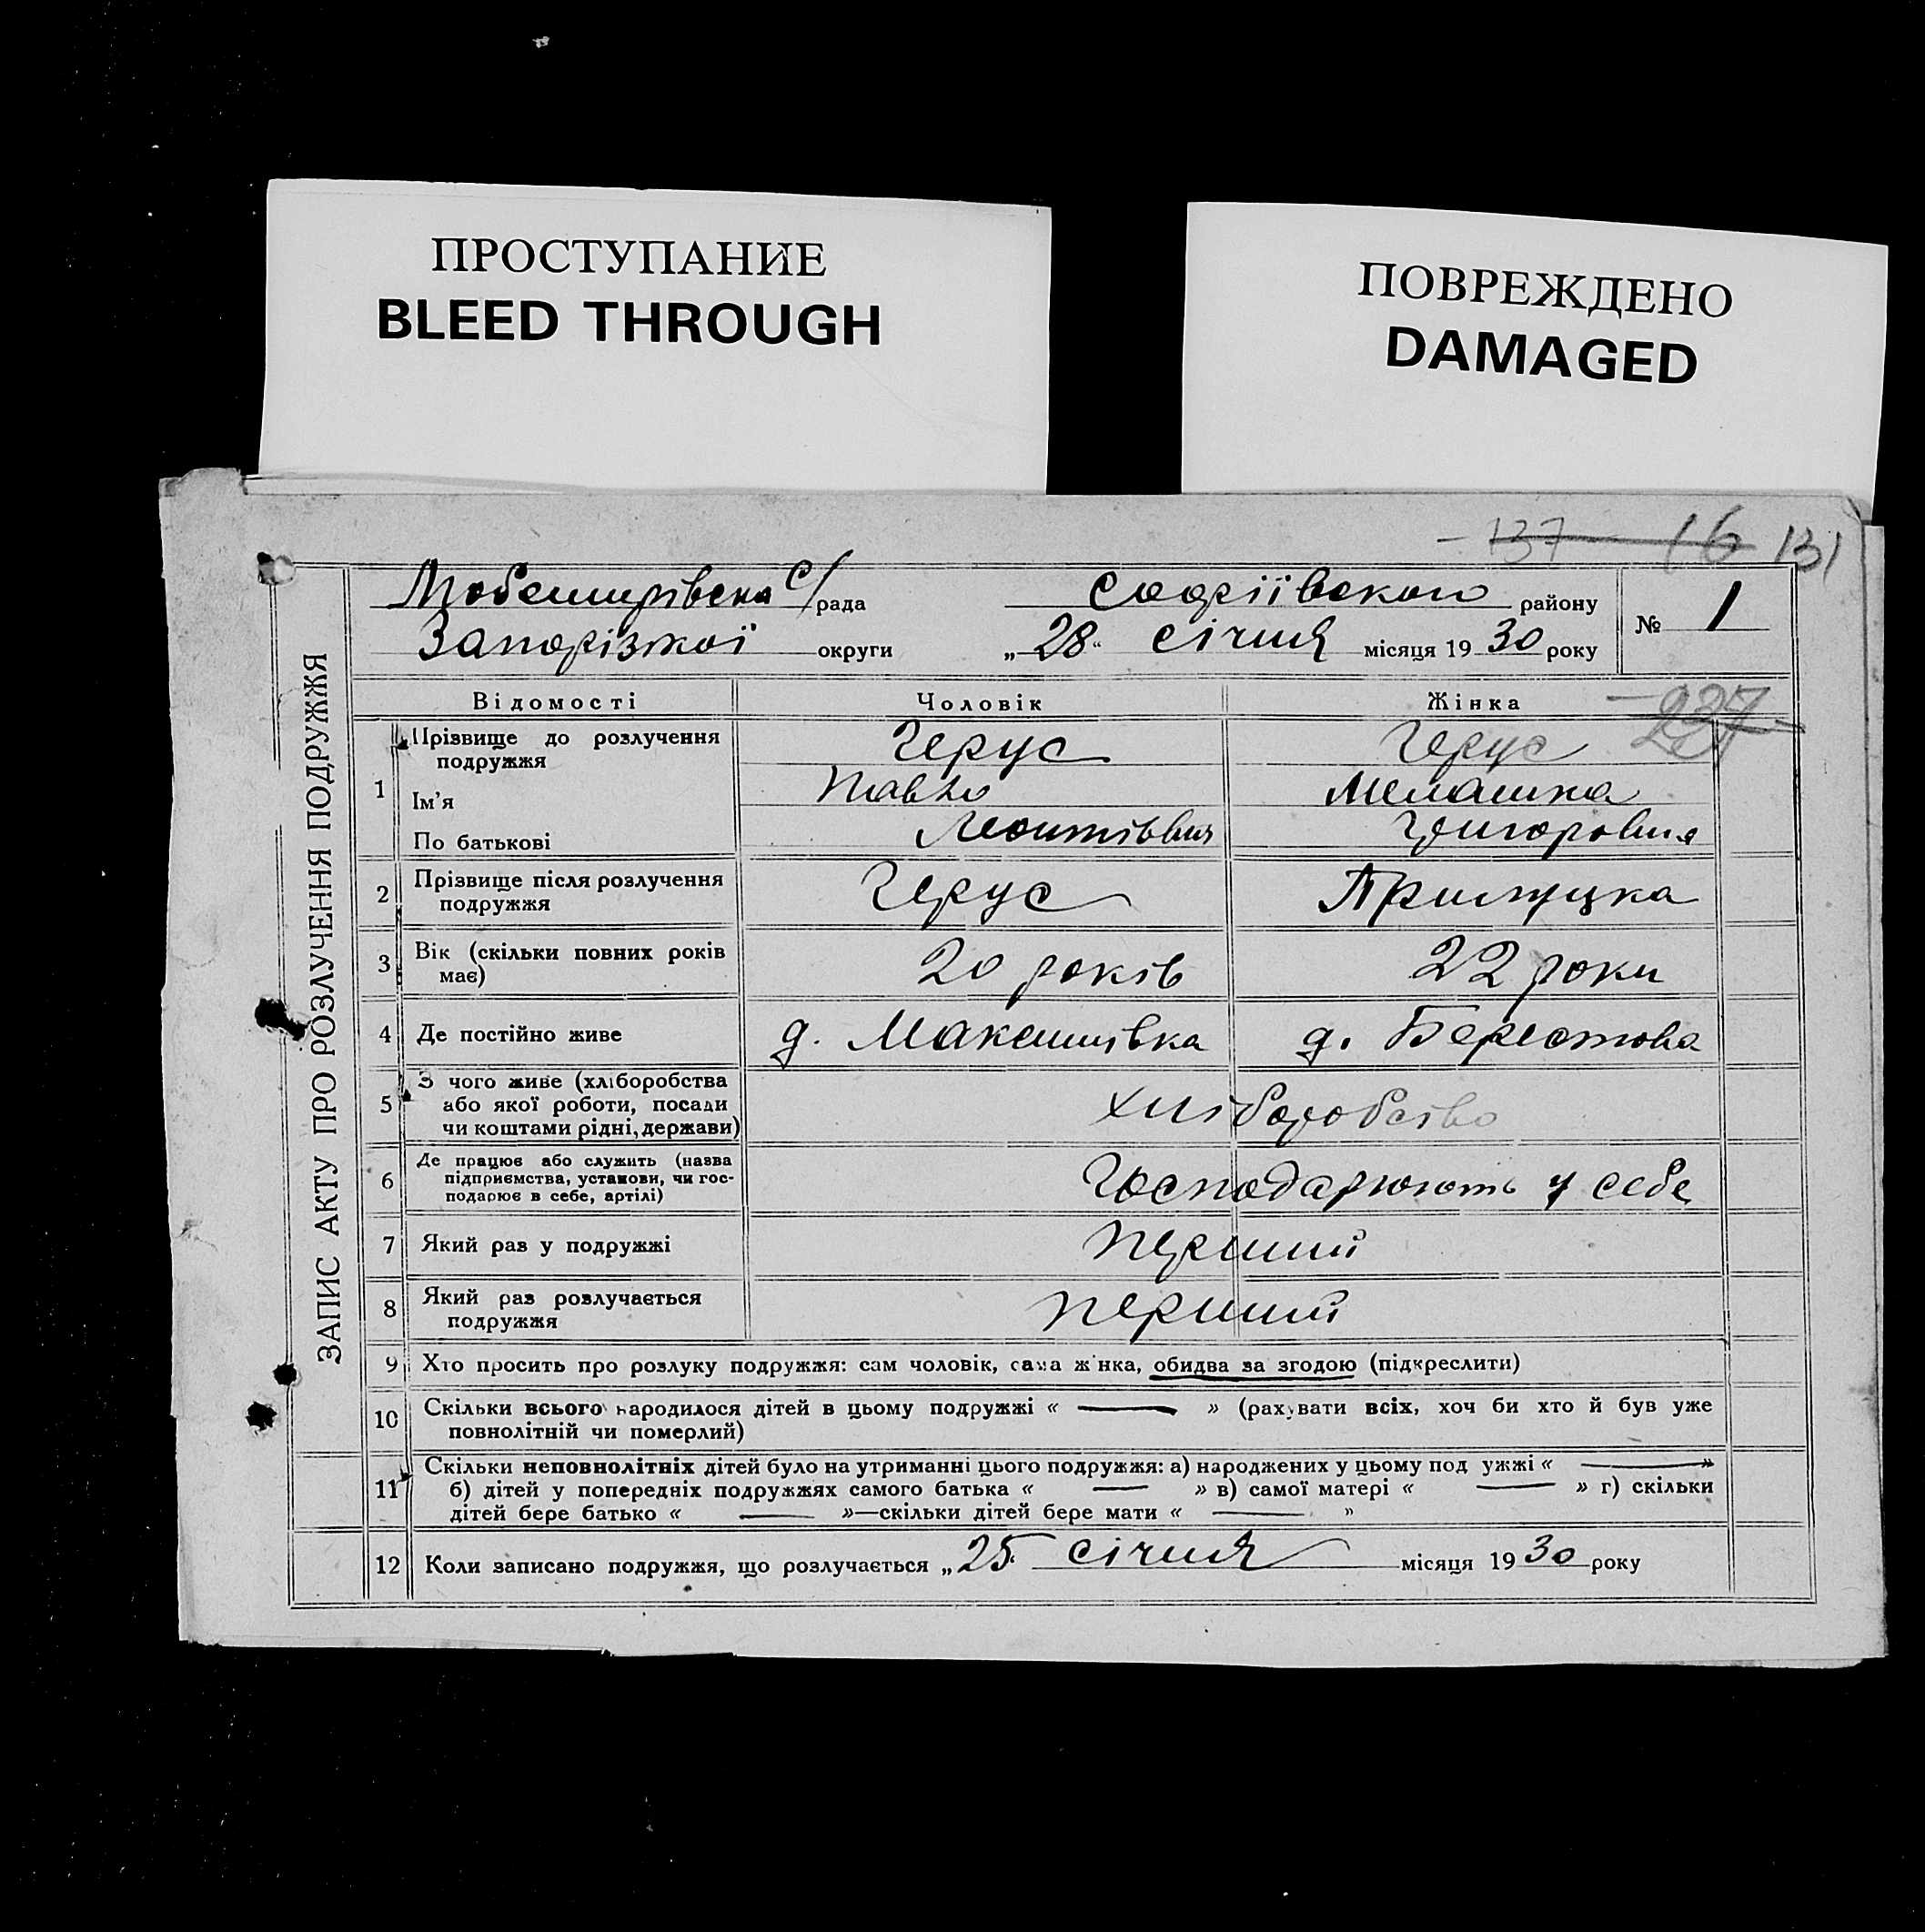 ПРОСТУПАНИЕ
BLEED THROUGH
ПОВРЕЖДЕНО
DAMAGED
137 16 131
ЗАПИС АКТУ ПРО РОЗЛУЧЕННЯ ПОДРУЖЖЯ
с/рада Софіївского району № 1
Запорізкої округи „28“ січня місяця 1930 року
Відомості Чоловік Жінка 237
1 Прізвище до розлучення подружжя Герус Герус
Ім’я Павло Мелашка
По батькові Леонтіввич Григоровна
2 Прізвище після розлучення подружжя Герус
3 Вік (скільки повних років має) 20 років 22 роки
4 Де постійно живе д. Максимівка д. Берестова
5 З чого живе (хліборобства
або якої роботи, посади
чи коштами рідні, держави) хліборобство
6 Де працює або служить (назва
підприємства, установи, чи гос-
подарює в себе, артілі) Господарюють у себе
7 Який раз у подружжі перший
8 Який раз розлучається
подружжя перший
9 Хто просить про розлуку подружжя: сам чоловік, сама жінка, обидва за згодою (підкреслити)
10 Скільки всього народилося дітей в цьому подружжі « — » (рахувати всіх, хоч би хто й був уже
повнолітній чи померлий)
11 Скільки неповнолітніх дітей було на утриманні цього подружжя: а) народжених у цьому под ужжі « — »
б) дітей у попередніх подружжях самого батька « — » в) самої матері « — » г) скільки
дітей бере батько « — »—скільки дітей бере мати « — »
12 Коли записано подружжя, що розлучається „25 січня місяця 1930 року